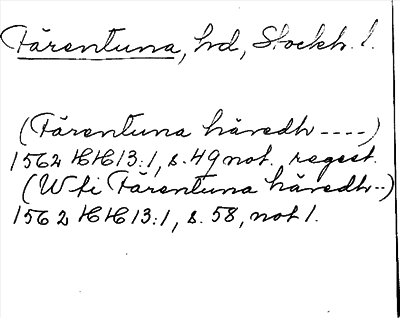 Färentuna, hd, Stockh. l.
(Färentuna häredh ----)
1562 HH 13:1, s. 49 not. regest.
(Wti Färentuna häredh --)
1562 HH 13:1, s. 58, not 1.